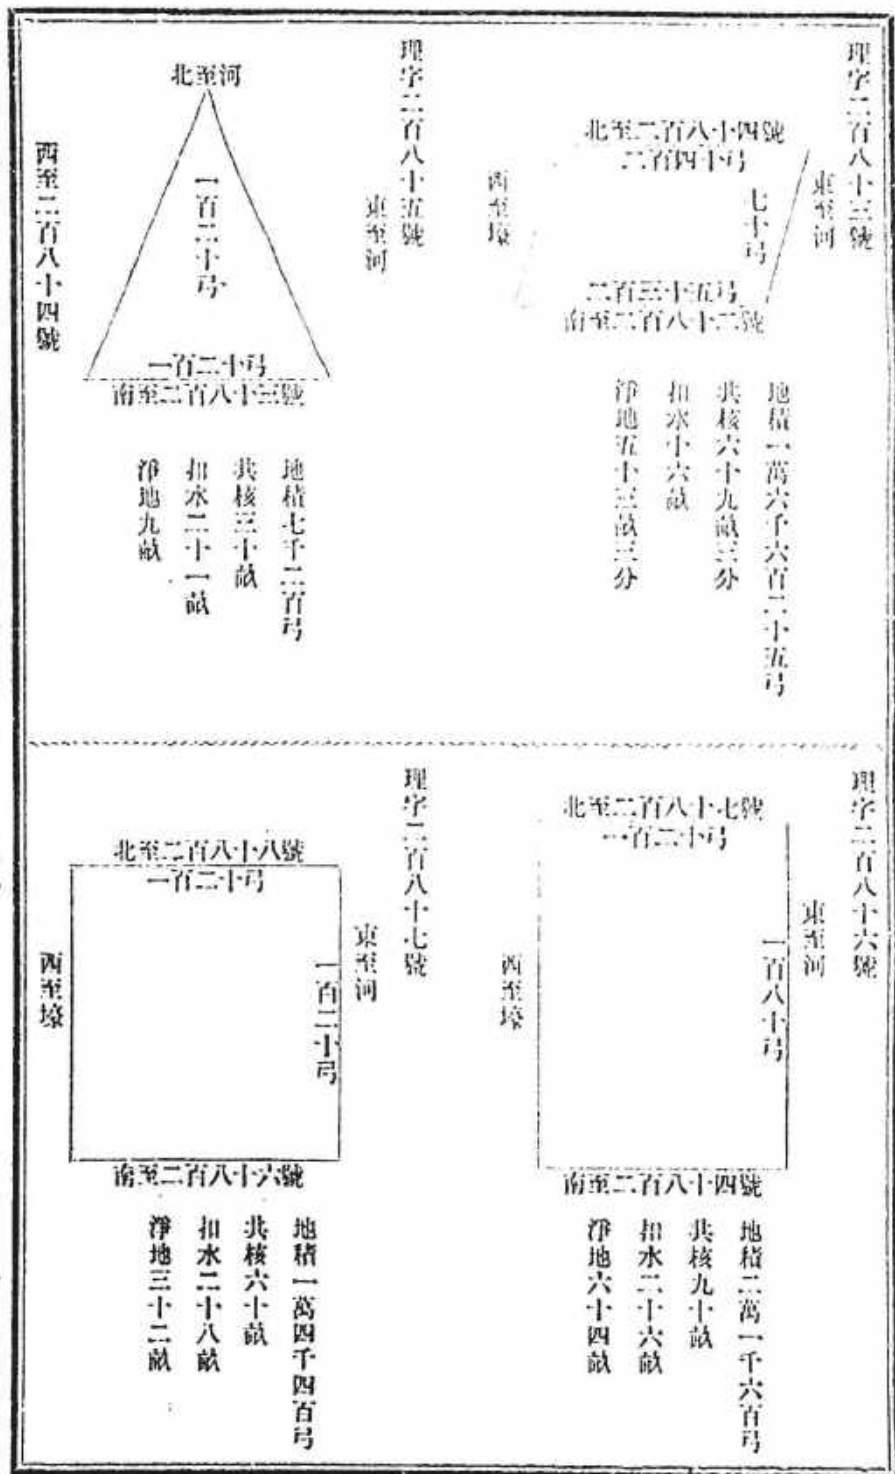 理字二百八十三號
東至河
北至二百八十四號
二百四十弓
七十弓
二百三十五弓
南至二百八十二號
西至壕
地積一萬六千六百二十五弓
共核六十九畝三分
扣水十六畝
淨地五十三畝三分
理字二百八十五號
東至河
北至河
一百二十弓
一百二十弓
南至二百八十三號
西至二百八十四號
地積七千二百弓
共核三十畝
扣水二十一畝
淨地九畝
理字二百八十六號
東至河
北至二百八十七號
一百二十弓
一百八十弓
南至二百八十四號
西至壕
地積二萬一千六百弓
共核九十畝
扣水二十六畝
淨地六十四畝
理字二百八十七號
東至河
北至二百八十八號
一百二十弓
一百二十弓
南至二百八十六號
西至壕
地積一萬四千四百弓
共核六十畝
扣水二十八畝
淨地三十二畝